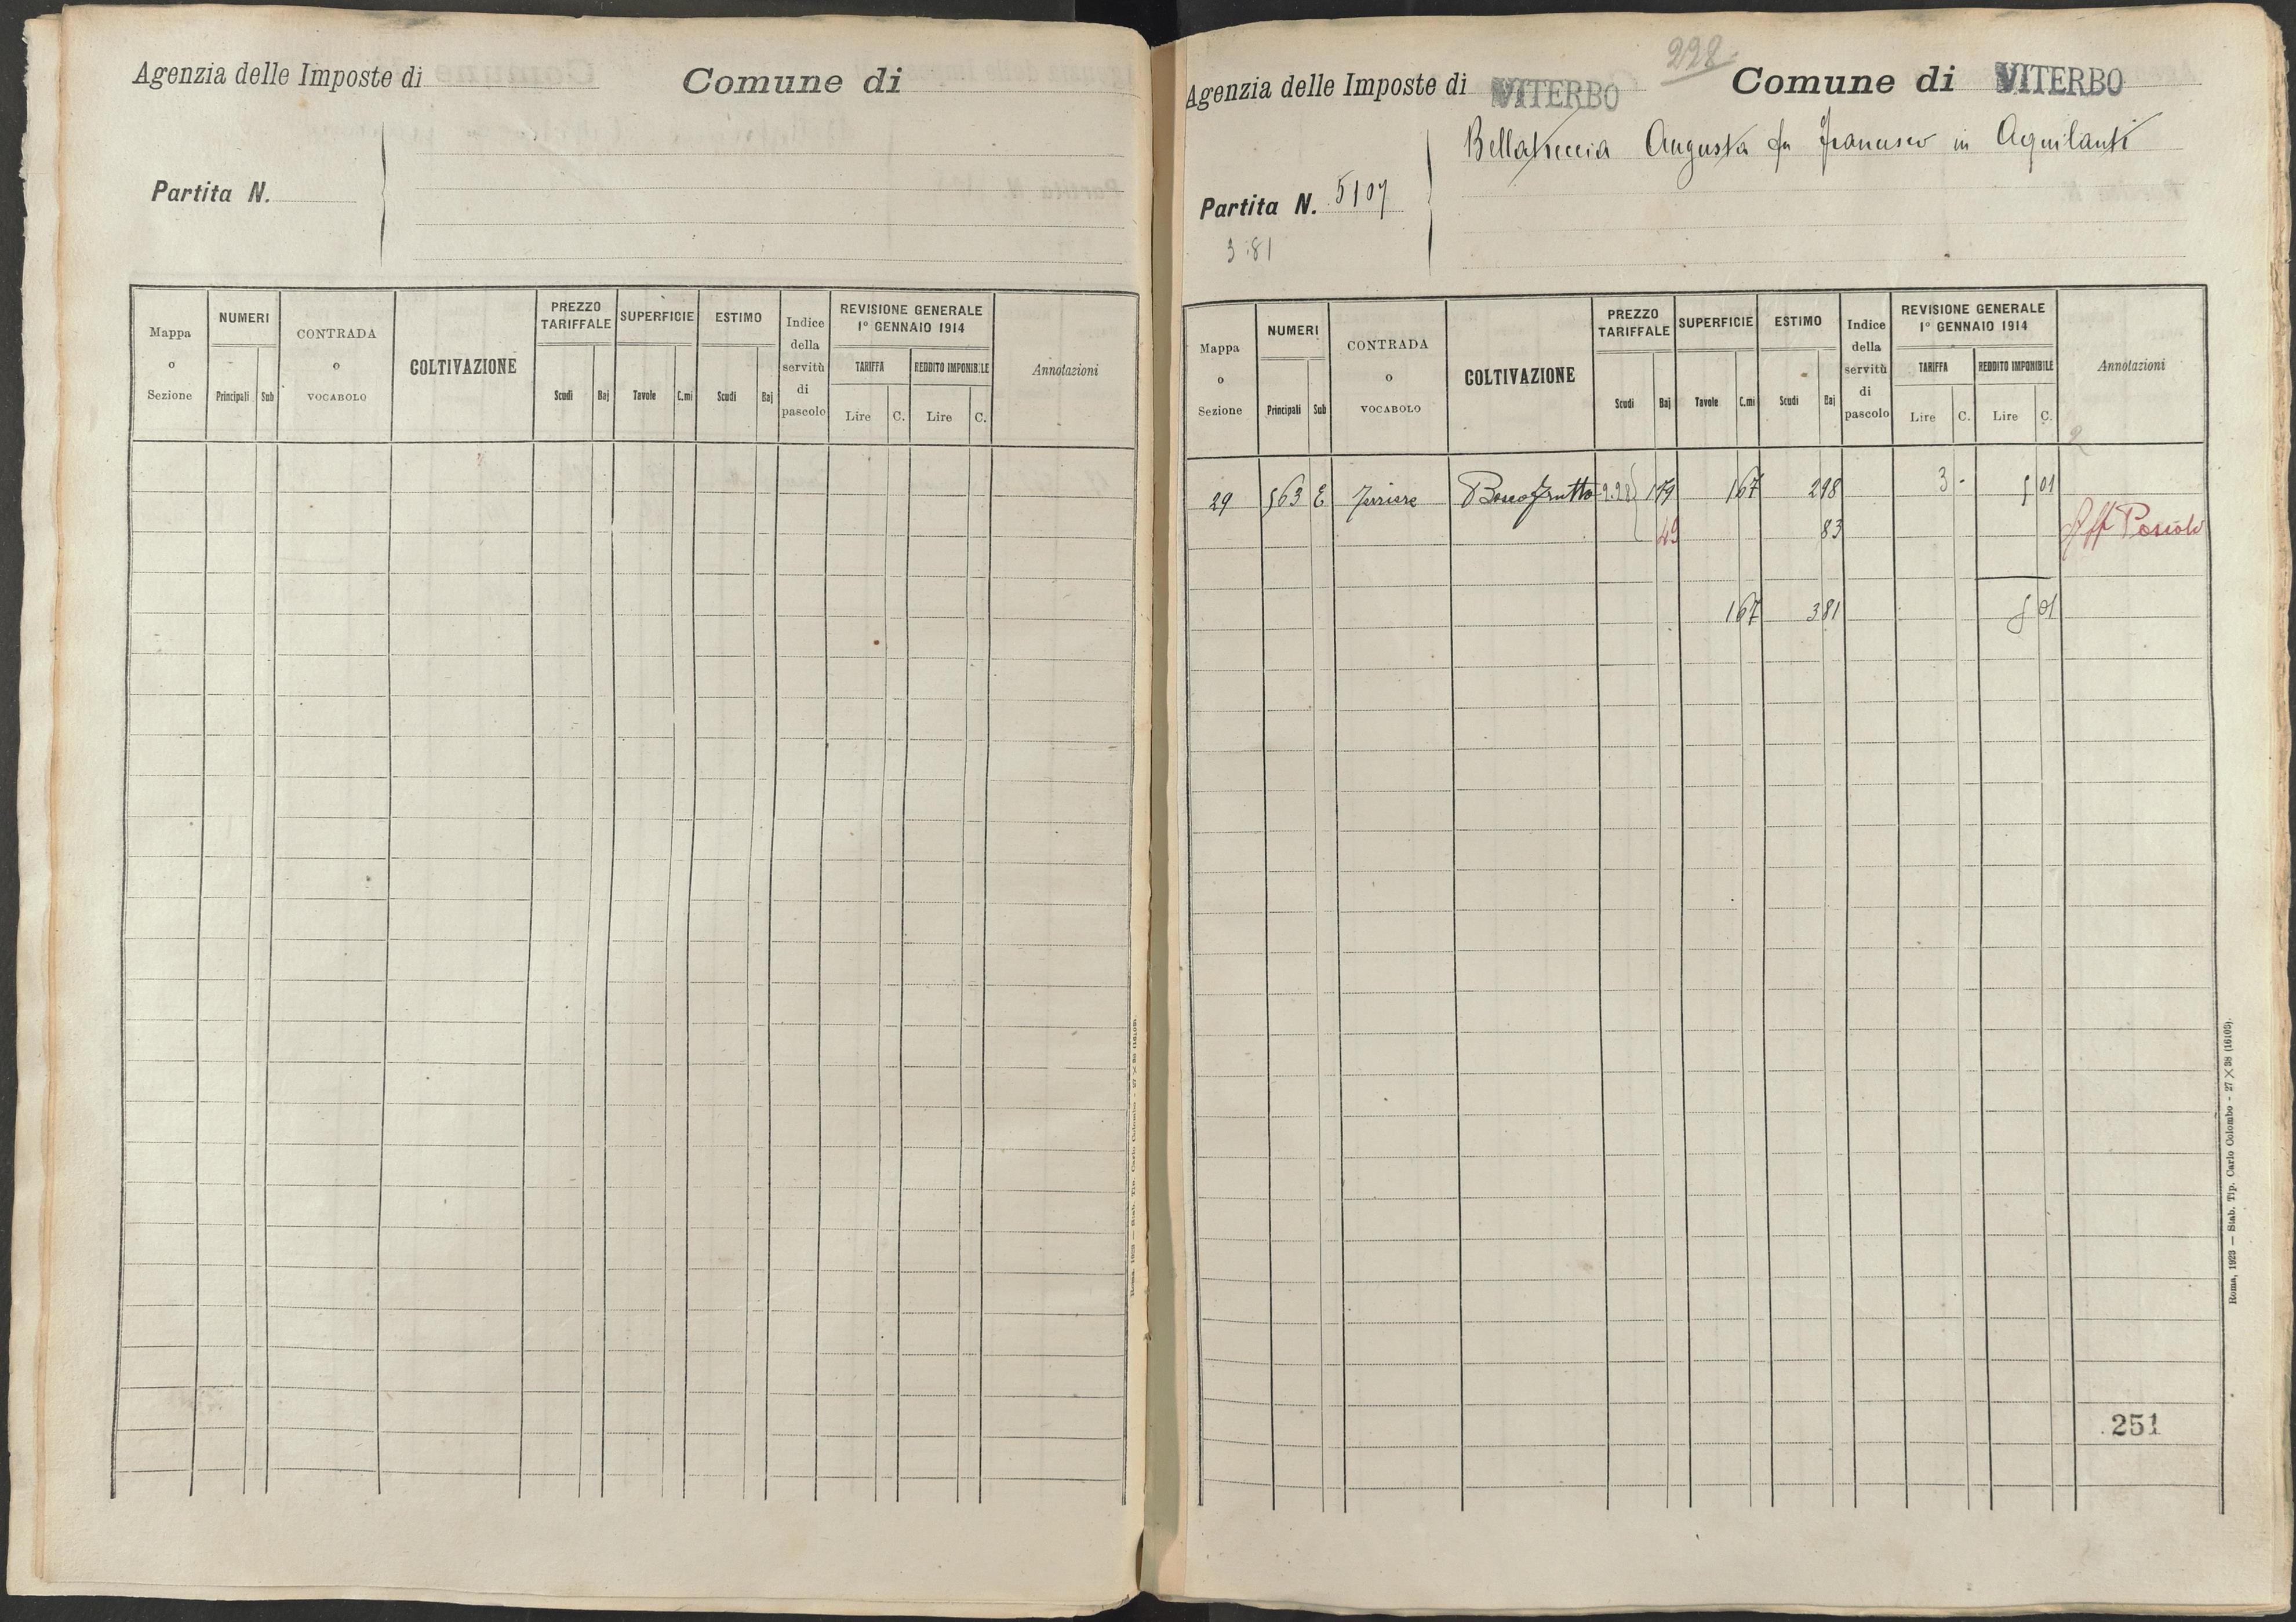 Agenzia delle Imposte di
Comune di
Partita N.
Mappa o Sezione
NUMERI
Principali
Sub
CONTRADA o VOCABOLO
COLTIVAZIONE
PREZZO TARIFFALE
Scudi
Baj
SUPERFICIE
Tavole
C.mi
ESTIMO
Scudi
Baj
Indice della servitù di pascolo
REVISIONE GENERALE 1º GENNAIO 1914
TARIFFA
Lire
C.
REDDITO IMPONIBILE
Lire
C.
Annotazioni
228
Agenzia delle Imposte di VITERBO
Comune di VITERBO
Augusta fu Francesco in Aquilanti
Partita N. 5107
3:81
Mappa o Sezione
NUMERI
Principali
Sub
CONTRADA o VOCABOLO
COLTIVAZIONE
PREZZO TARIFFALE
Scudi
Baj
SUPERFICIE
Tavole
C.mi
ESTIMO
Scudi
Baj
Indice della servitù di pascolo
REVISIONE GENERALE 1º GENNAIO 1914
TARIFFA
Lire
C.
REDDITO IMPONIBILE
Lire
C.
Annotazioni
29 563 E Bosco Frutto 2.28 179 167 298 3 - 5 01
49 83 Aff Pascolo
167 381 5 01
251
Roma, 1923 — Stab. Tip. Carlo Colombo - 27 × 38 (16109).